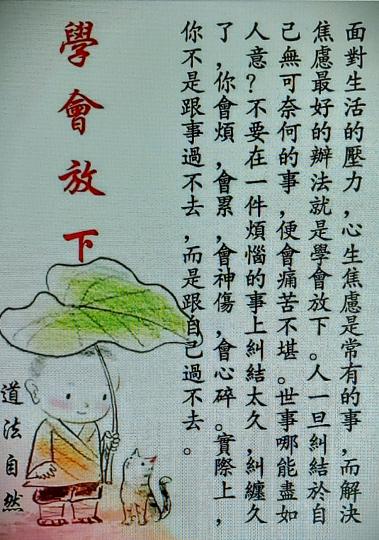 學會放下
面對生活的壓力,心生焦慮是常有的事,而解決
焦慮最好的辦法就是學會放下。人一旦糾結於自
己無可奈何的事,便會痛苦不堪。世事哪能盡如
人意?不要在一件煩惱的事上糾結太久,糾纏久
了,你會煩,會累,會神傷,會心碎。實際上,
你不是跟事過不去,而是跟自己過不去。
道法自然